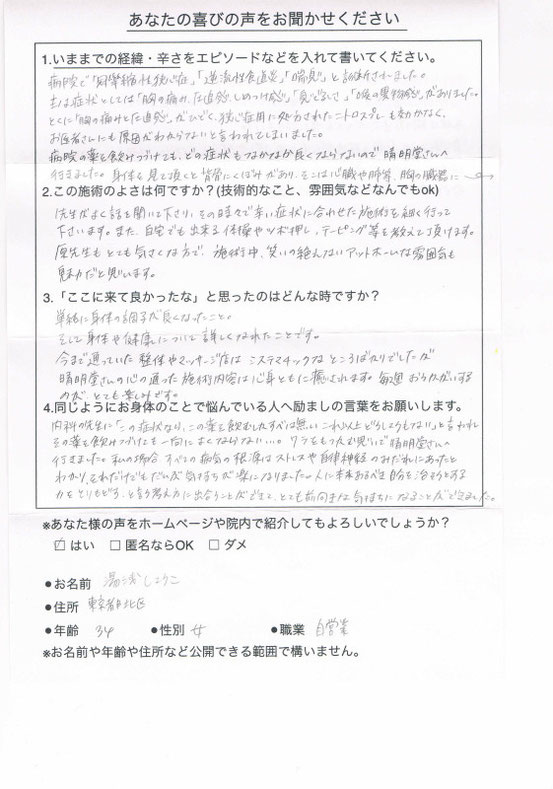 あなたの喜びの声をお聞かせください
1.いままでの経緯・辛さをエピソードなどを入れて書いてください。
病院で「冠攣縮性狭心症」「逆流性食道炎」「喘息」と診断されました。
主な症状としては「胸の痛み、圧迫感、しめつけ感」「息ぐるしさ」「喉の異物感」がありました。
とくに「胸の痛みと圧迫感」がひどく、狭心症用に処方されたニトロスプレーも効かなく、
お医者さんにも原因がわからないと言われてしまいました。
病院の薬を飲みつづけても、どの症状もなかなか良くならないので晴明堂さんへ
行きました。身体を見て頂くと背骨にくぼみがあり、そこは心臓や肺等、胸の臓器に→
2.この施術のよさは何ですか?(技術的なこと、雰囲気などなんでもok)
先生がよく話を聞いて下さり、その時々で辛い症状に合わせた施術を細く行って
下さいます。また、自宅でも出来る体操やツボ押し、テーピング等を教えて頂けます。
原先生もとても気さくな方で、施術中、笑いの絶えないアットホームな雰囲気も
魅力だと思います。
3.「ここに来て良かったな」と思ったのはどんな時ですか?
単純に身体の調子が良くなったこと。
そして身体や健康について詳しくなれたことです。
今まで通っていた整体やマッサージ店はシステマチックなところばかりでしたが
晴明堂さんの心の通った施術内容は心身ともに癒されます。毎週おうかがいする
のが、とても楽しみです。
4.同じようにお身体のことで悩んでいる人へ励ましの言葉をお願いします。
内科の先生に「この症状なり、この薬を飲むしかすべは無い、これ以上どうしようもない」と言われ
その薬を飲みつづけても一向によくならない…。ワラをもつかむ思いで晴明堂さんへ
行きました。私の場合、すべての病気の根源はストレスや自律神経のみだれにあったと
わかり、それだけでもだいぶ気持ちが楽になりました。人に本来あるべき自分を治そうとする
力をとりもどす、と言う考え方に出会うことができて、とても前向きな気持ちになることができました。
※あなた様の声をホームページや院内で紹介してもよろしいでしょうか?
☑ はい □ 匿名ならOK □ ダメ
●お名前 湯浅しょうこ
●住所 東京都北区
●年齢 34 ●性別 女 ●職業 自営業
※お名前や年齢や住所など公開できる範囲で構いません。